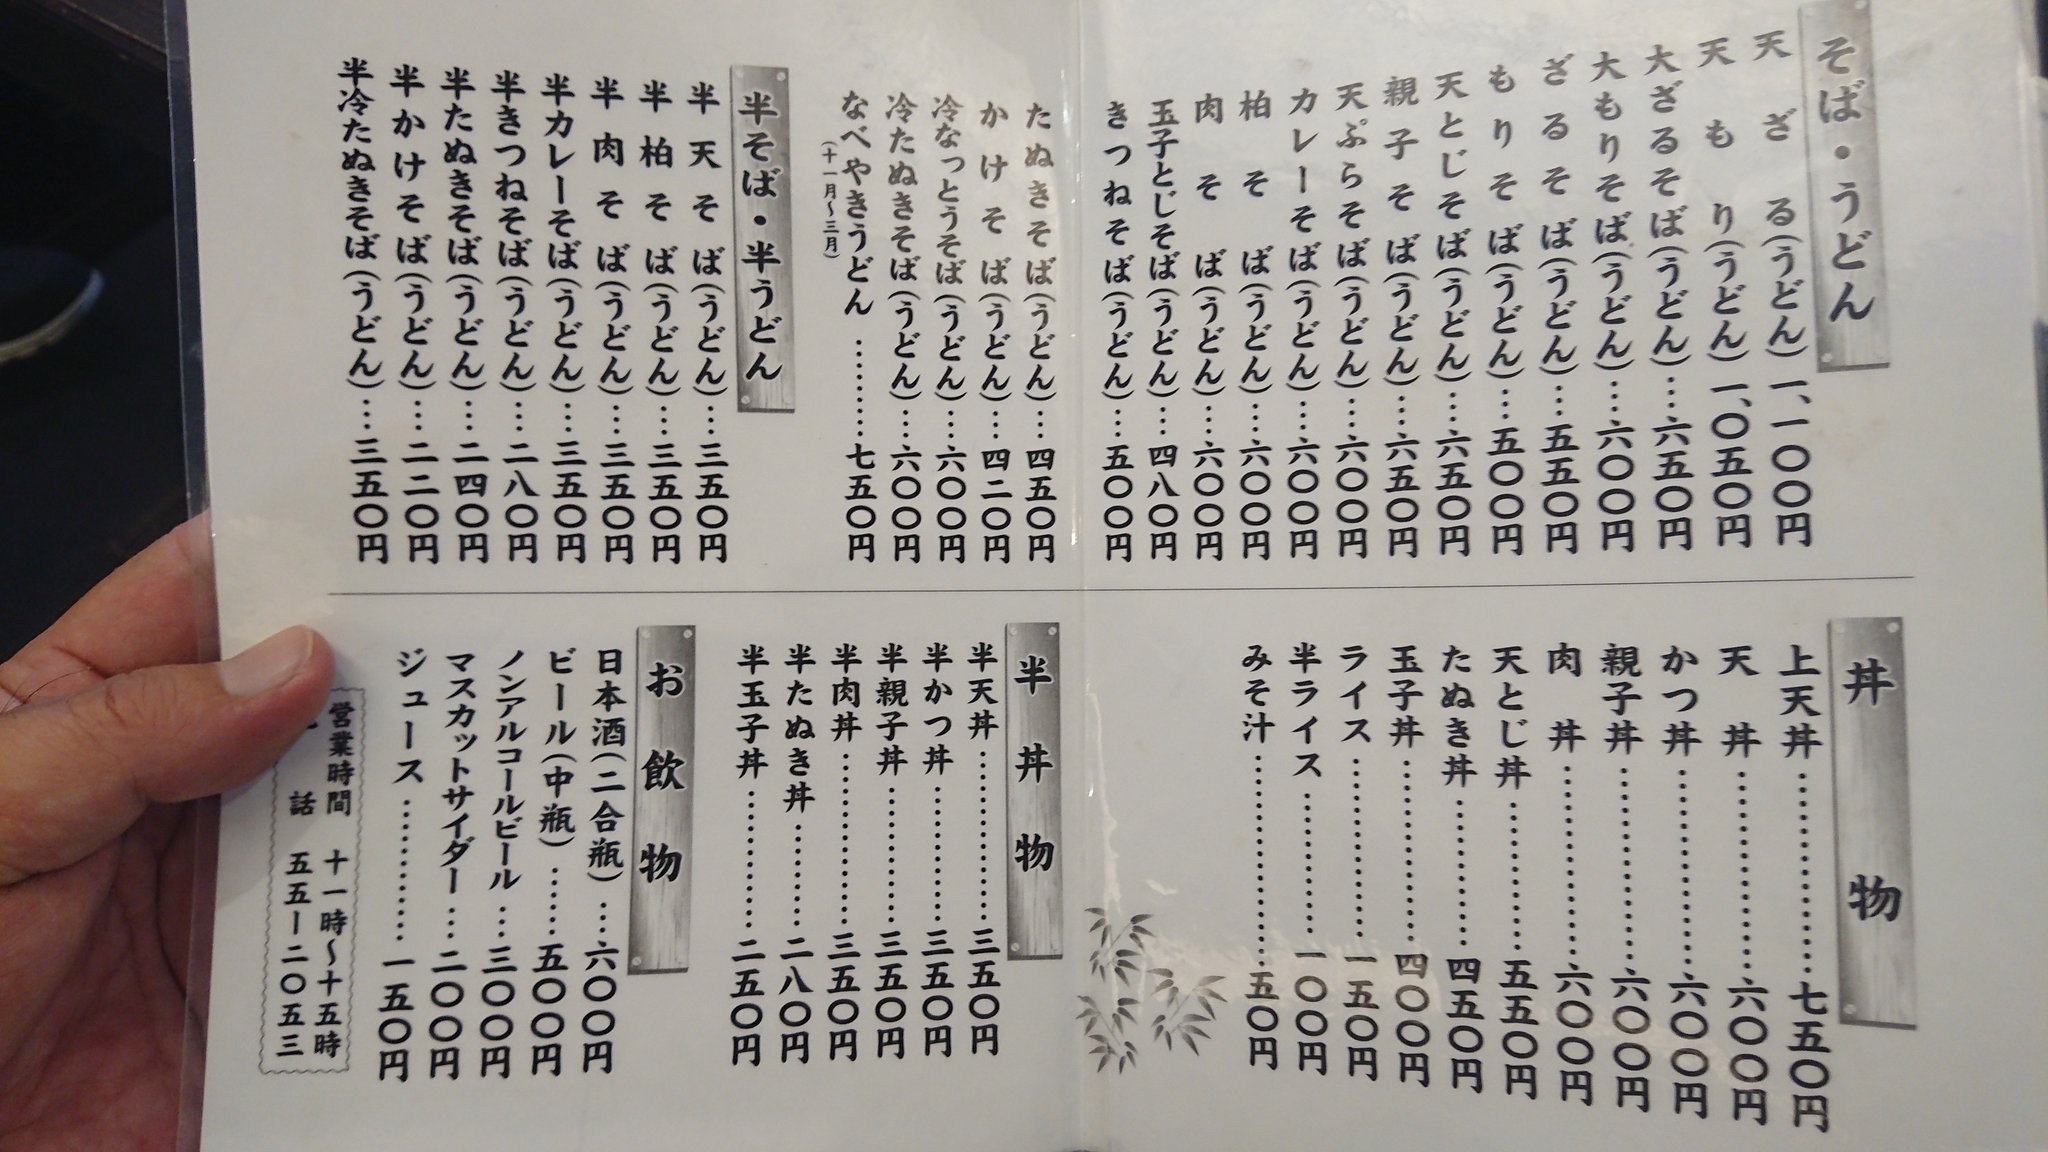 そば・うどん
天ざる(うどん)一、一〇〇円
天もり(うどん)一、〇五〇円
大ざるそば(うどん)…六五〇円
大もりそば(うどん)…六〇〇円
ざるそば(うどん)…五五〇円
もりそば(うどん)…五〇〇円
天とじそば(うどん)…六五〇円
親子そば(うどん)…六五〇円
天ぷらそば(うどん)…六〇〇円
カレーそば(うどん)…六〇〇円
柏そば(うどん)…六〇〇円
肉そば(うどん)…六〇〇円
玉子とじそば(うどん)…四八〇円
きつねそば(うどん)…五〇〇円
たぬきそば(うどん)…四五〇円
かけそば(うどん)…四二〇円
冷なっとうそば(うどん)…六〇〇円
冷たぬきそば(うどん)…六〇〇円
なべやきうどん………七五〇円
(十一月〜三月)
半そば・半うどん
半天そば(うどん)…三五〇円
半柏そば(うどん)…三五〇円
半肉そば(うどん)…三五〇円
半カレーそば(うどん)…三五〇円
半きつねそば(うどん)…二八〇円
半たぬきそば(うどん)…二四〇円
半かけそば(うどん)…二二〇円
半冷たぬきそば(うどん)…三五〇円
丼物
上天丼………………七五〇円
天丼………………六〇〇円
かつ丼………………六〇〇円
親子丼………………六〇〇円
肉丼………………六〇〇円
天とじ丼……………五五〇円
たぬき丼……………四五〇円
玉子丼………………四〇〇円
ライス………………一五〇円
半ライス……………一〇〇円
みそ汁………………五〇円
半丼物
半天丼………………三五〇円
半かつ丼……………三五〇円
半親子丼……………三五〇円
半肉丼………………三五〇円
半たぬき丼…………二八〇円
半玉子丼……………二五〇円
お飲物
日本酒(二合瓶)…六〇〇円
ビール(中瓶)……五〇〇円
ノンアルコールビール…三〇〇円
マスカットサイダー…二〇〇円
ジュース…………一五〇円
営業時間 十一時〜十五時
話 五五ー二〇五三